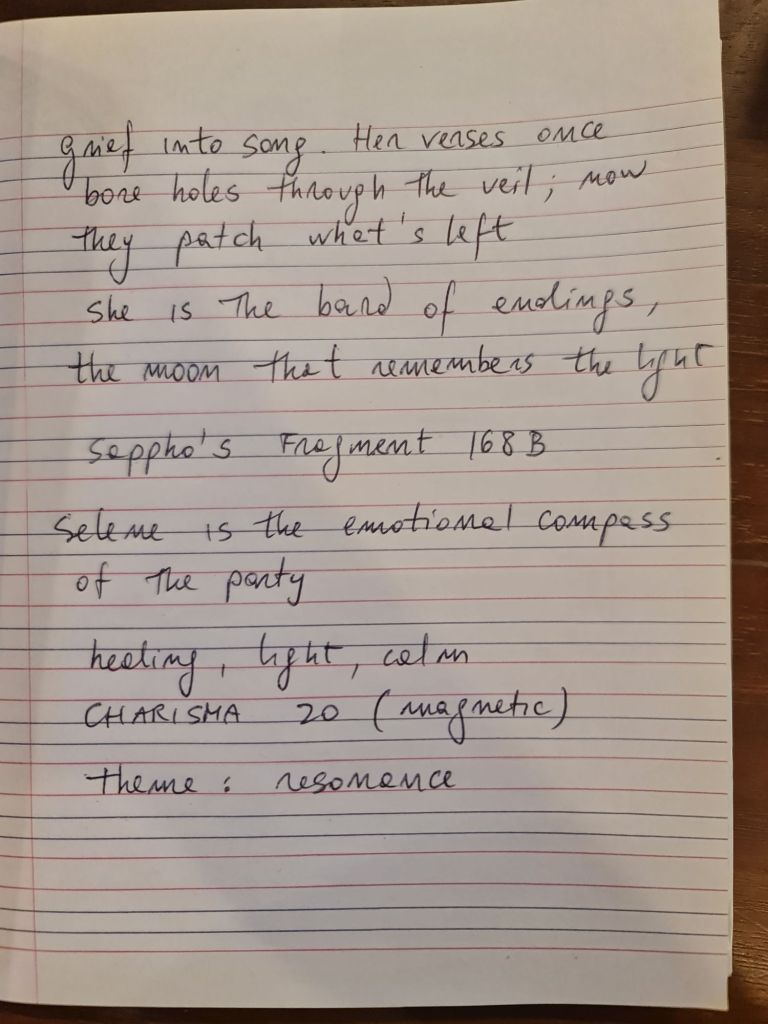 grief into song. Her verses once
bore holes through the veil; now
they patch what's left
she is the bard of endings,
the moon that remembers the light
Sappho's Fragment 168 B
Selene is the emotional compass
of the party
healing, light, calm
CHARISMA 20 (magnetic)
theme: resonance